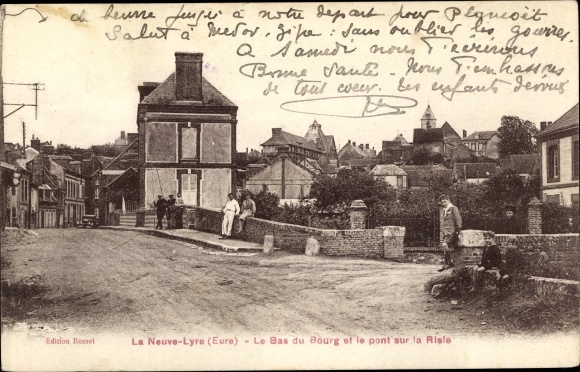 de beurre jusqu'à notre départ pour
Salut à Medor, Zife : sans oublier les gourres.
A Samedi nous t'écrirons
Bonne Santé. Nous t'embrassons
de tout coeur. Les enfants dévoués
Edition Rosset
La Neuve-Lyre (Eure) - Le Bas du Bourg et le pont sur la Risle